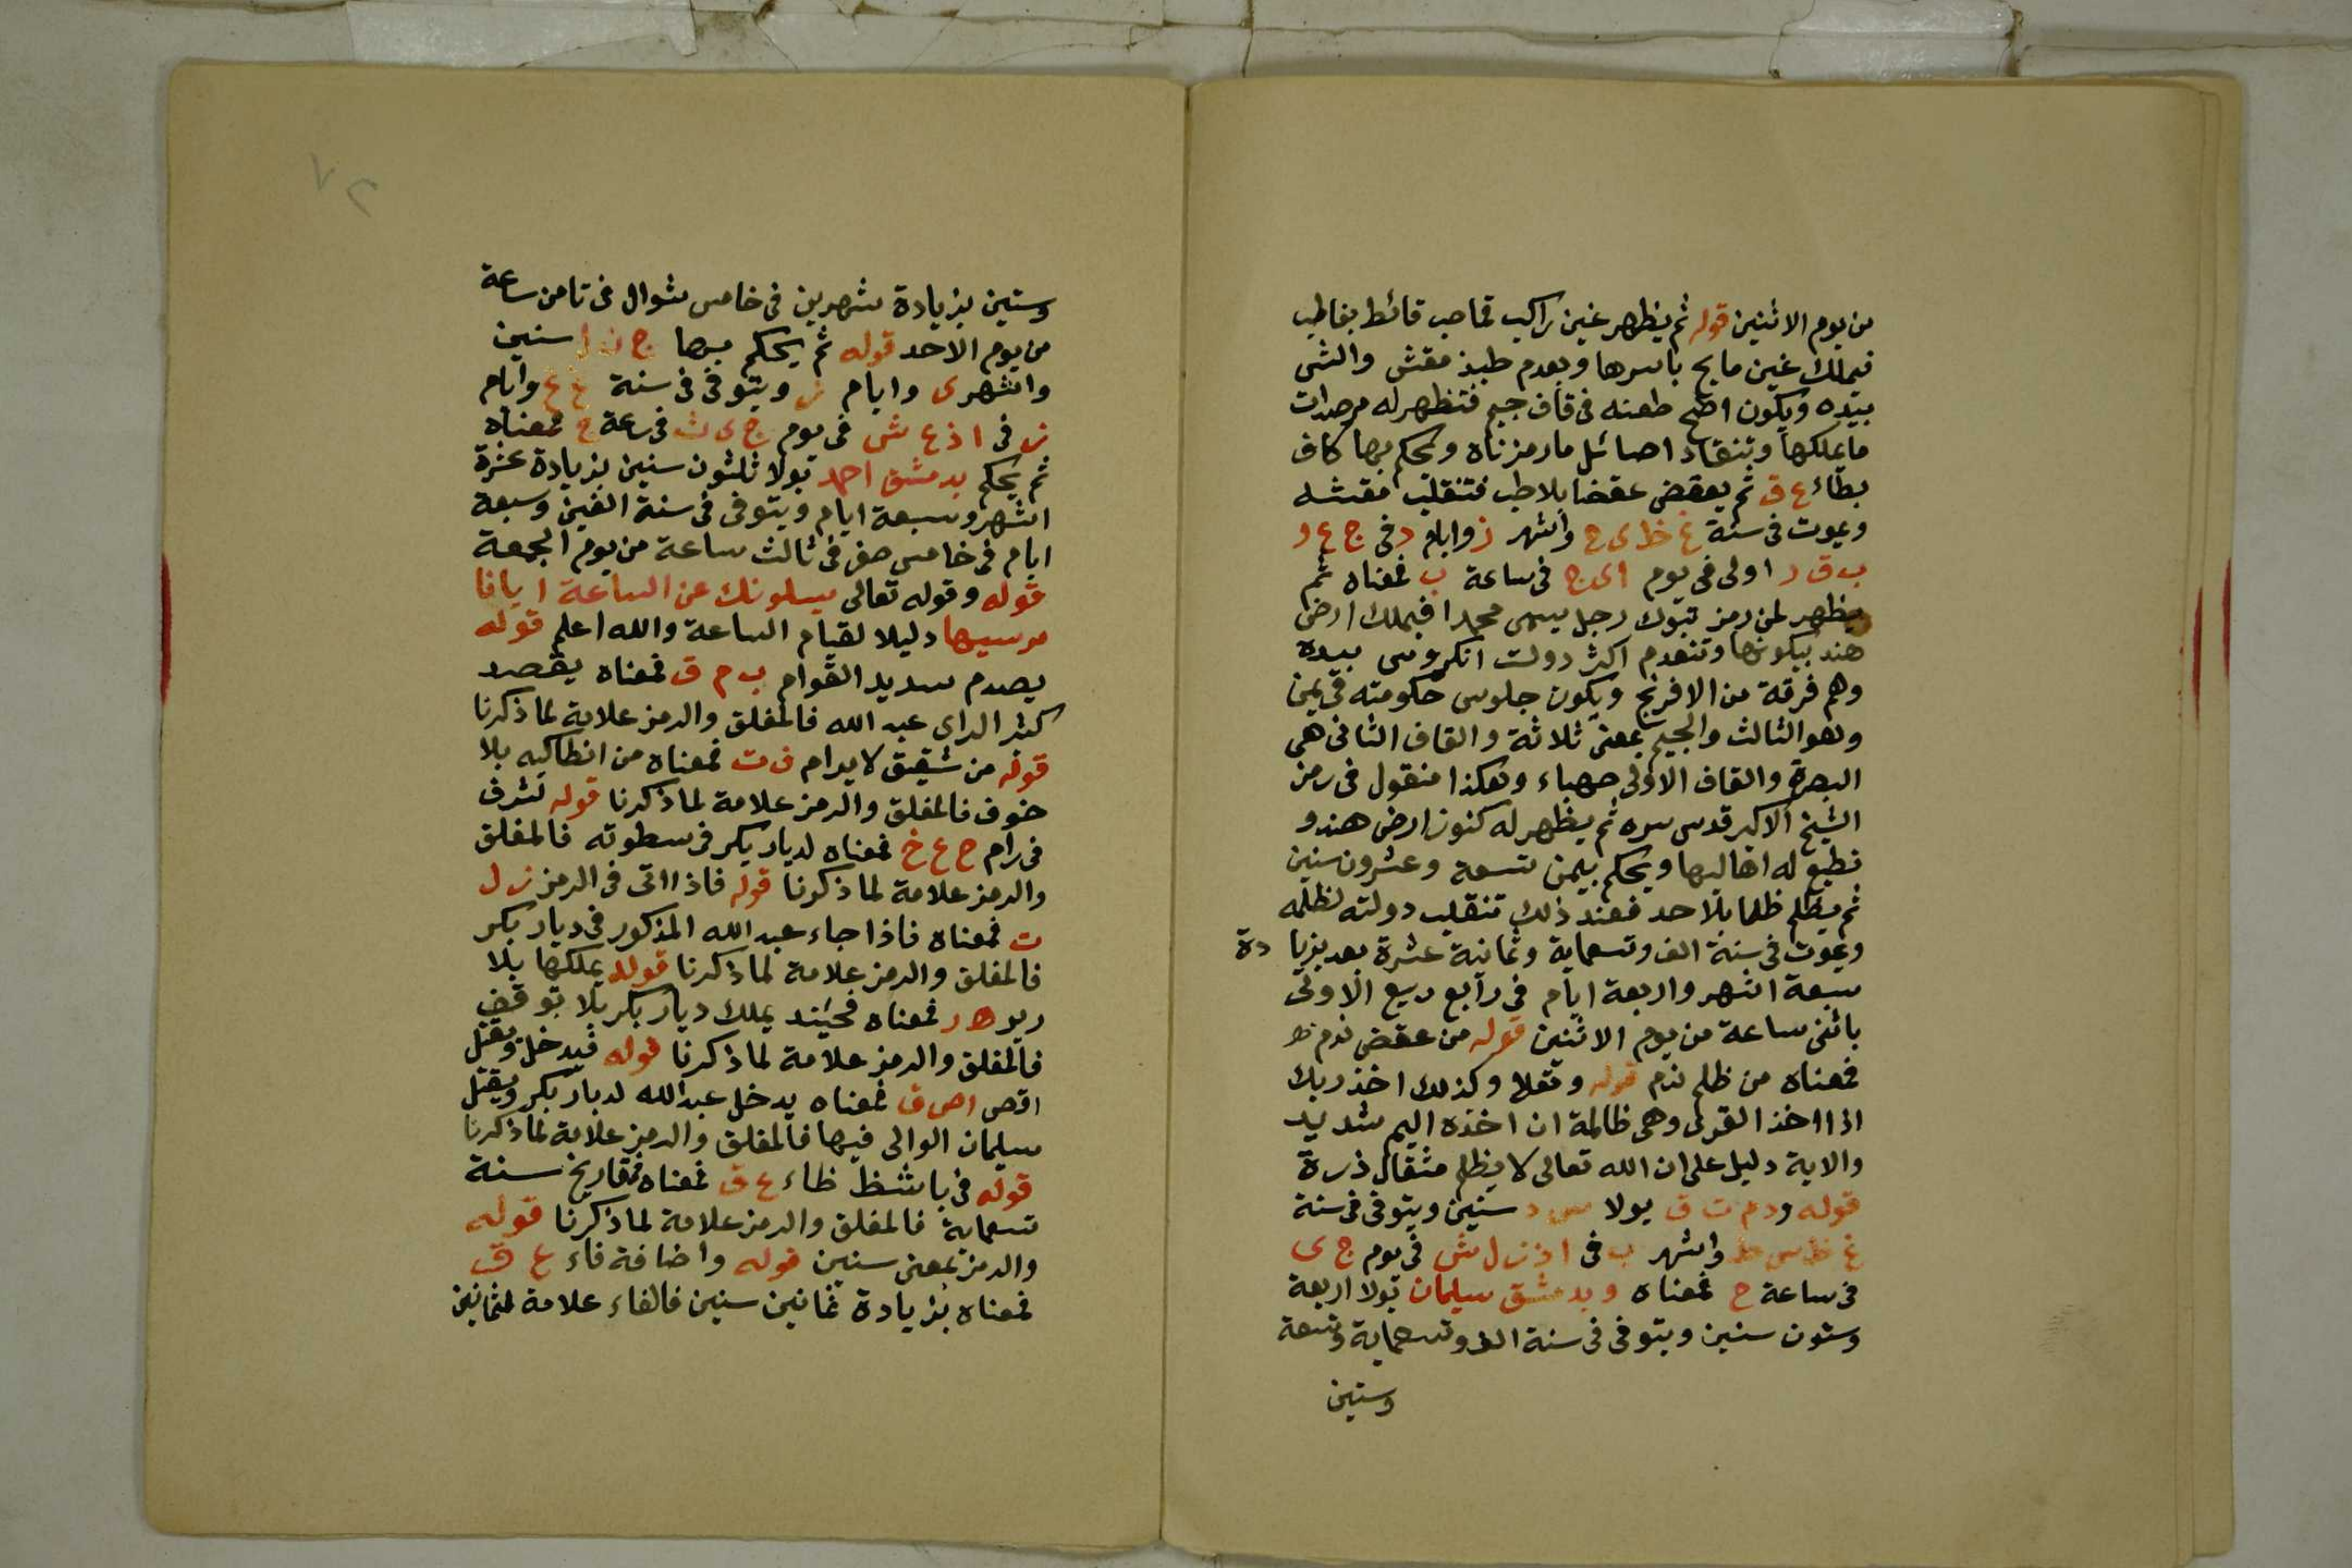 من يوم الاثنين قوله ثم يظهر غين راكب قاصب قائط بفاطب
فيملك غين مابج باسرها ويعدم طبذ مقش والشى
بيده ويكون اضح طعنه فى قاف جيم فتظهر له مرصدات
ما يملكها وتنقاد اصائل مارمزناه ويحكم بها كاف
بطاء ع ق ثم يعقض عقضا بلاطب فتنقلب مقشه
ويموت فى سنة غ ظ ى ح واشهر ز وايام د فى ج ع ر
ب ق ر اولى فى يوم اى ج فى ساعة ب فمعناه ثم
يظهر لمن رمز تبوك رجل يسمى محمدا فيملك ارض
هند بيكونها وتنعدم اكثر دولت انكروس بيده
وهم فرقة من الافرنج ويكون جلوس حكومته فى يمن
وهو الثالث والجيم بمعنى ثلاثة والقاف الثانى هى
البصرة والقاف الاولى صهباء وهكذا منقول فى رمز
الشيخ الاكبر قدس سره ثم يظهر له كنوز ارض هند و
تطيع له اهاليها ويحكم بيمن تسعة وعشرون سنين
ثم يظلم ظلما بلا حد فعند ذلك تنقلب دولته لظلمه
ويموت فى سنة الف وتسعماية وثمانية عشرة بعد بزيا دة
سبعة اشهر واربعة ايام فى رابع ربيع الاولى
باثنى ساعة من يوم الاثنين قوله من عقض ندم ظ
فمعناه من ظلم ندم قوله وتعلا وكذلك اخذ ربك
اذا اخذ القرى وهى ظالمة ان اخذه اليم شديد
والاية دليل على ان الله تعالى لا يظلم مثقال ذرة
قوله ودم ت ق يولا س د سنين ويتوفى فى سنة
غ ظ س ط واشهر ب فى اذن ل ش فى يوم ج ى
فى ساعة ح فمعناه وبدمشق سليمان تولا اربعة
وستون سنين ويتوفى فى سنة الف وتسعماية وتسعة
وستين
وستين بزيادة شهرين فى خامس شوال فى ثامن ساعة
من يوم الاحد قوله ثم يحكم بها ج ن ا سنين
واشهر ى وايام ز ويتوفى فى سنة غ غ وايام
ز فى ا ذ ع ش فى يوم ج ى ث فى ساعة ج فمعناه
ثم يحكم بدمشق احمد تولا ثلثون سنين بزيادة عشرة
اشهر وسبعة ايام ويتوفى فى سنة الفين وسبعة
ايام فى خامس صفر فى ثالث ساعة من يوم الجمعة
قوله وقوله تعالى يسلونك عن الساعة ايافا
مرسيها دليلا لقيام الساعة والله اعلم قوله
يصدم سديد القوام ب م ق فمعناه يقصد
كثر الراى عبد الله فالمغلق والرمز علامة لما ذكرنا
قوله من شقيق لا يرام ف ت فمعناه من انطاكيه بلا
خوف فالمغلق والرمز علامة لما ذكرنا قوله لشرف
فى رام ح ع خ فمعناه لديار بكر فى سطوته فالمغلق
والرمز علامة لما ذكرنا قوله فاذا اتى فى الرمز ز ل
ت فمعناه فاذا جاء عبد الله المذكور فى ديار بكر
فالمغلق والرمز علامة لما ذكرنا قوله يملكها بلا
ريو ه ر فمعناه فحيئند يملك ديار بكر بلا توقف
فالمغلق والرمز علامة لما ذكرنا قوله فيدخل ويقتل
اقصى اص ق فمعناه يدخل عبد الله لديار بكر ويقتل
سليمان الوالى فيها فالمغلق والرمز علامة لما ذكرنا
قوله فى باشظ ظاء ع ق فمعناه فى تاريخ سنة
تسعماية فالمغلق والرمز علامة لما ذكرنا قوله
والرمز بمعنى سنين قوله واضافة فاء ع ق
فمعناه بزيادة ثمانين سنين فالفاء علامة لثمانين